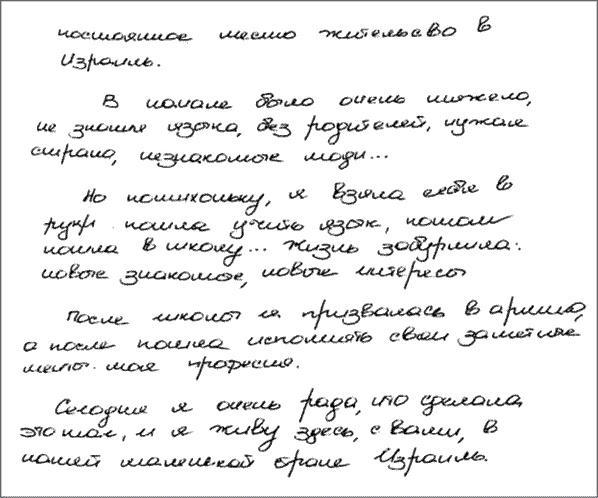 постоянное место жительсво в
Израиль.
В начале было очень тяжело,
не зношие языка, без родителей, чужая
страна, незнакомые люди...
Но потихоньку, я взяла себя в
руки пошла учить язык, потом
пошла в школу... жизнь забурлила:
новые знакомые, новые интересы
После школы я призвалась в армию,
а после пошла исполнять свои заметные
мечты моя професия.
Сегодня я очень рада, что сделала
это шаг, и я живу здесь, с вами, в
нашей маленькой стране Израиль.